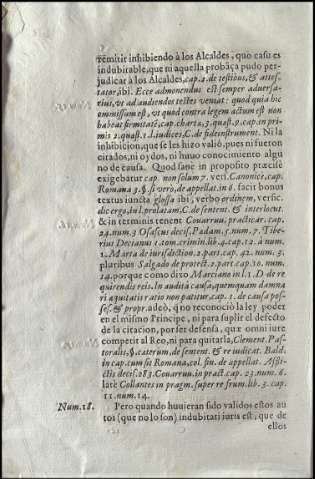 remitir inhibiendo à los Alcaldes, quo casu es
indubitable, que ni aquella probãça pudo per-
judicar à los Alcaldes, cap. 2. de testibus, & attes-
tatio. ibi. Ecce admonendus est semper adversa-
rius, vt ad audiendos testes veniat: quod quia hic
ommissum est, vt quod contra legem actum est non
habeat firmitatẽ, cap. charta, 3. quæst. 9. cap. in pri-
mis 2. quæst. 1. l. iudices, C. de fide instrument. Ni la
inhibicion, que se les hizo valiò, pues ni fueron
citados, ni oydos, ni huuo conocimiento algu
no de causa. Quod sane in proposito præcisè
exigebatur cap. non solum 7. vers. Canonice, cap.
Romana 3. §. si verò, de appellat. in 6. facit bonus
textus iuncta glossa ibi, verbo ordinem, versic.
dic ergo, in l. prolatam, C. de sentent. & interlocut.
& in terminis tenent Couarruu. practicar. cap.
24. num. 3 Osascus decis. Padam. 5. num. 7. Tibe-
rius Decianus 1. tom. crimin. lib. 4. cap. 12. à num.
1. Marta de iurisdiction. 2. part. cap. 42. num. 5.
pluribus Salgado de protect. 2. part. cap. 10. num.
14. porque como dixo Marciano in l. 1. D. de re
quirendis reis. In audita causa, quemquam damna
ri æquitatis ratio non patitur cap. 1. de causa pos-
ses. & propried. que no reconociò la ley poder
en el mismo Principe, ni para suplir el defecto
de la citacion, por ser defensa, que omni iure
competit al Reo, ni para quitarla, Clement. Pas-
toralis, §. cæterum, de sentent. & re iudicat. Bald.
in cap. cum sit Romana, col. fin. de appellat. Afflic-
tis decis. 283. Couarruu. in pract. cap. 23. num. 6.
late Collantes in pragm. super re frum. lib. 3. cap.
11. num. 14.
Num. 18. Pero quando huuieran sido validos estos au
tos (que no lo son) indubitati iuris est, que de
ellos